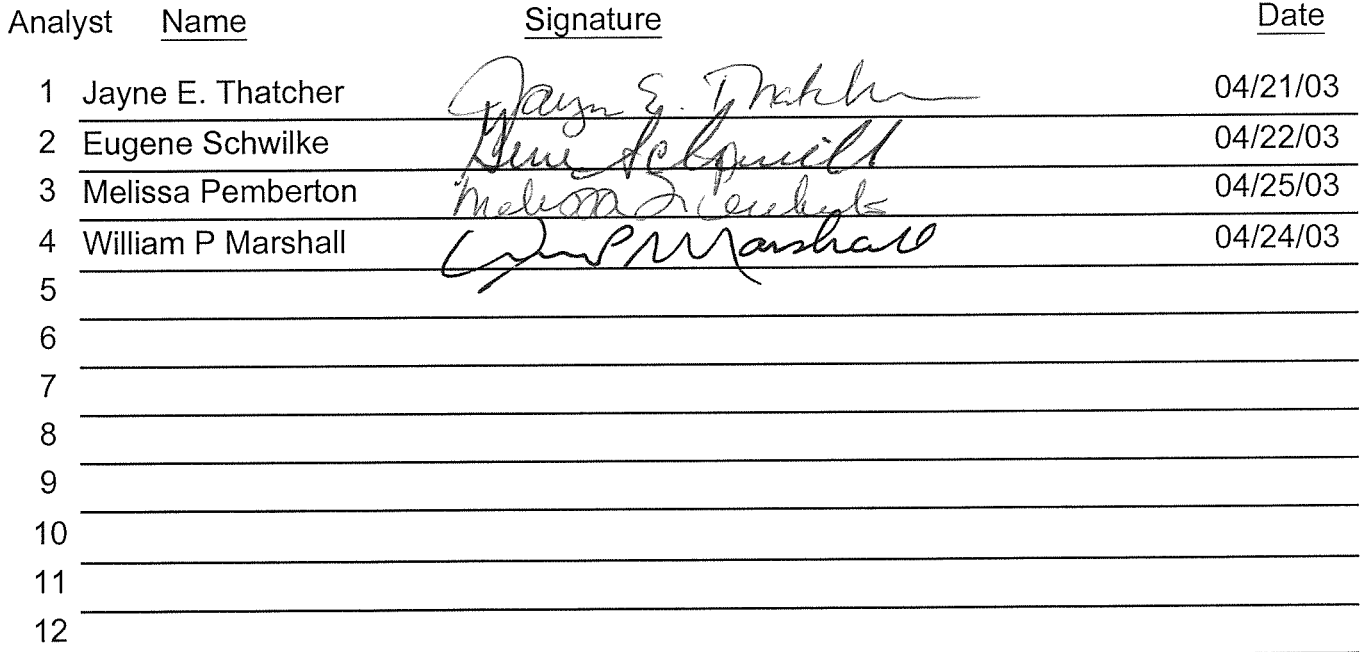 Analyst Name Signature Date
1 Jayne E. Thatcher Jayne E. Thatcher 04/21/03
2 Eugene Schwilke Gene 04/22/03
3 Melissa Pemberton Melissa 04/25/03
4 William P Marshall Wm P Marshall 04/24/03
5
6
7
8
9
10
11
12